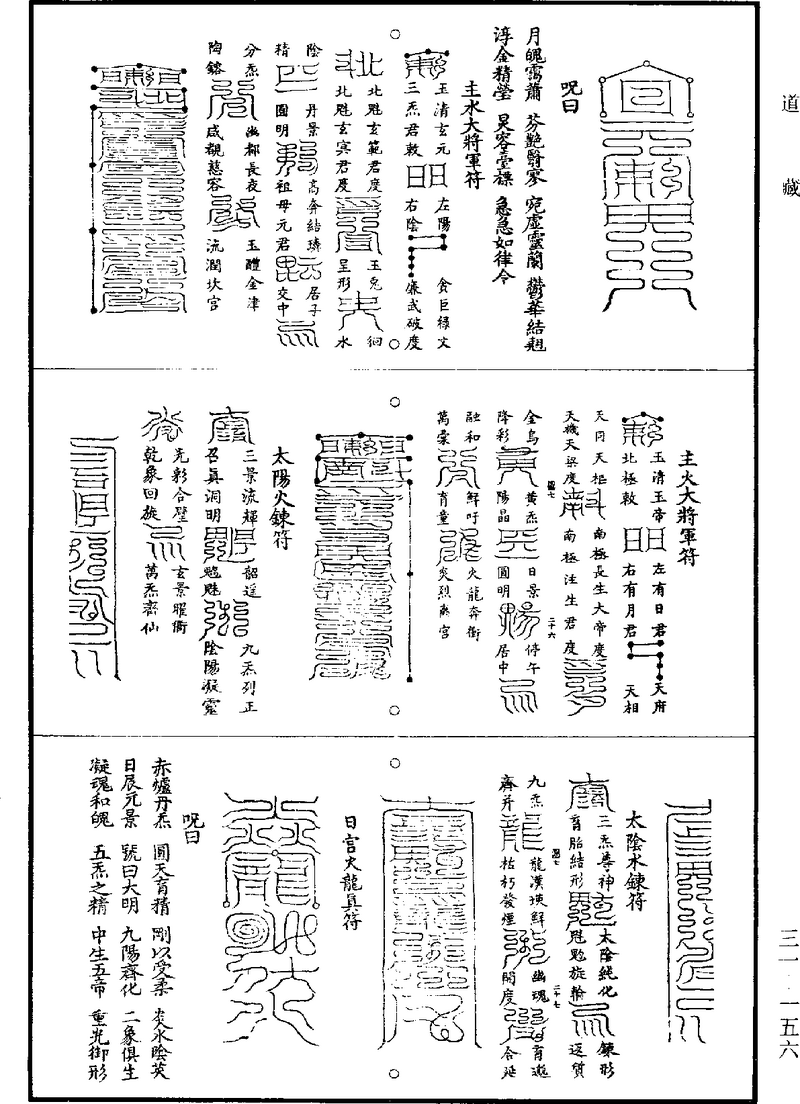 道藏
呪曰
月魄霭蕭 芬艷翳寥 宛虛靈蘭 鬱華結翹
淳金精瑩 炅容臺標 急急如律令
主水大將軍符
玉清玄元 左陽 貪巨祿文
三炁君敕 右陰 廉武破度
北魁玄範君度 玉兔 徊
北魁玄冥君度 呈形 水
陰 丹景 高奔結璘 居子
精 圓明 祖母元君 交中
分炁 幽都長夜 玉醴金津
陶鎔 咸覩慈容 流潤坎宮
主火大將軍符
玉清玉帝 左有日君 天府
北極敕 右有月君 天相
天同天樞 南極長生大帝度
天機天梁度 南極注生君度
金烏 黃炁 日景 停午
降彩 陽晶 圓明 居中
融和 鮮吁 火龍奔衝
萬彙 育童 炎烈离宮
太陽火鍊符
三景流輝 韶遑 九炁列正
召真洞明 魁魁 陰陽凝靈
光彩合璧 玄景曜衝
乾象回旋 萬炁齊仙
太陰水鍊符
三炁尊神 太陰純化 鍊形
育胎結形 魁魁旋輪 返質
九炁 龍漢瑛鮮 幽魂 育遨
齊并 枯朽發煙 開度 合延
日宮火龍真符
呪曰
赤爐丹炁 圓天育精 剛以受柔 炎水陰英
日辰元景 號曰大明 九陽齊化 二象俱生
凝魂和魄 五炁之精 中生五帝 重光御形
三一・一五六